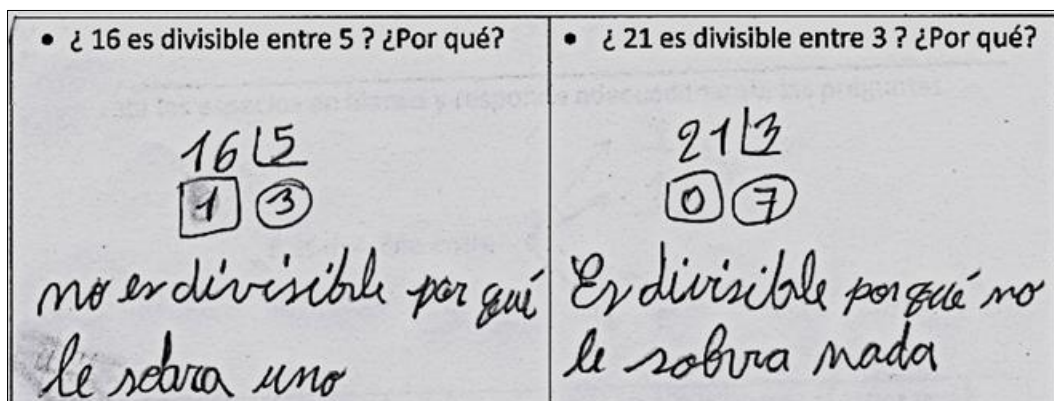 • ¿ 16 es divisible entre 5 ? ¿Por qué?
16 5
1 3
no es divisible por qué
le sobra uno
• ¿ 21 es divisible entre 3 ? ¿Por qué?
21 3
0 7
Es divisible por qué no
le sobra nada